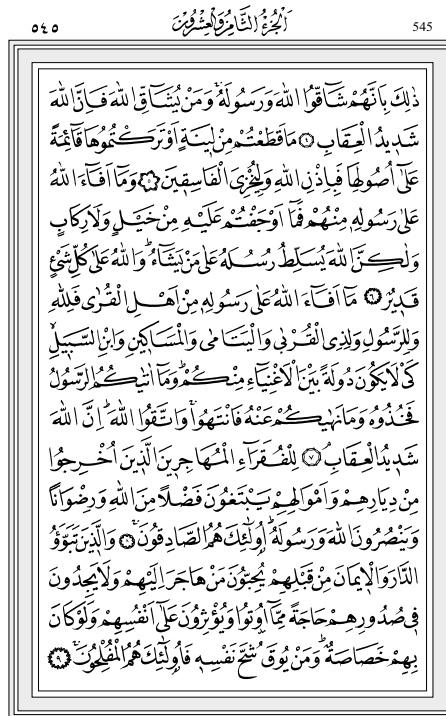 ٥٤٥ الْجُزْءُ الثَّامِنُ وَالْعِشْرُونَ 545
ذٰلِكَ بِاَنَّهُمْ شَٓاقُّوا اللّٰهَ وَرَسُولَهُۚ وَمَنْ يُشَٓاقِّ اللّٰهَ فَاِنَّ اللّٰهَ
شَد۪يدُ الْعِقَابِ ﴿٤﴾ مَا قَطَعْتُمْ مِنْ ل۪ينَةٍ اَوْ تَرَكْتُمُوهَا قَٓائِمَةً
عَلٰٓى اُصُولِهَا فَبِاِذْنِ اللّٰهِ وَلِيُخْزِيَ الْفَاسِق۪ينَ ﴿٥﴾ وَمَٓا اَفَٓاءَ اللّٰهُ
عَلٰى رَسُولِه۪ مِنْهُمْ فَمَٓا اَوْجَفْتُمْ عَلَيْهِ مِنْ خَيْلٍ وَلَا رِكَابٍ
وَلٰكِنَّ اللّٰهَ يُسَلِّطُ رُسُلَهُ عَلٰى مَنْ يَشَٓاءُۜ وَاللّٰهُ عَلٰى كُلِّ شَيْءٍ
قَد۪يرٌ ﴿٦﴾ مَٓا اَفَٓاءَ اللّٰهُ عَلٰى رَسُولِه۪ مِنْ اَهْلِ الْقُرٰى فَلِلّٰهِ
وَلِلرَّسُولِ وَلِذِي الْقُرْبٰى وَالْيَتَامٰى وَالْمَسَاك۪ينِ وَابْنِ السَّب۪يلِۙ
كَيْ لَا يَكُونَ دُولَةً بَيْنَ الْاَغْنِيَٓاءِ مِنْكُمْۜ وَمَٓا اٰتٰيكُمُ الرَّسُولُ
فَخُذُوهُ وَمَا نَهٰيكُمْ عَنْهُ فَانْتَهُواۚ وَاتَّقُوا اللّٰهَۜ اِنَّ اللّٰهَ
شَد۪يدُ الْعِقَابِۢ ﴿٧﴾ لِلْفُقَرَٓاءِ الْمُهَاجِر۪ينَ الَّذ۪ينَ اُخْرِجُوا
مِنْ دِيَارِهِمْ وَاَمْوَالِهِمْ يَبْتَغُونَ فَضْلًا مِنَ اللّٰهِ وَرِضْوَانًا
وَيَنْصُرُونَ اللّٰهَ وَرَسُولَهُۜ اُو۬لٰٓئِكَ هُمُ الصَّادِقُونَۚ ﴿٨﴾ وَالَّذ۪ينَ تَبَوَّؤُ
الدَّارَ وَالْا۪يمَانَ مِنْ قَبْلِهِمْ يُحِبُّونَ مَنْ هَاجَرَ اِلَيْهِمْ وَلَا يَجِدُونَ
ف۪ي صُدُورِهِمْ حَاجَةً مِمَّٓا اُو۫تُوا وَيُؤْثِرُونَ عَلٰٓى اَنْفُسِهِمْ وَلَوْ كَانَ
بِهِمْ خَصَاصَةٌۜ وَمَنْ يُوقَ شُحَّ نَفْسِه۪ فَاُو۬لٰٓئِكَ هُمُ الْمُفْلِحُونَۚ ﴿٩﴾